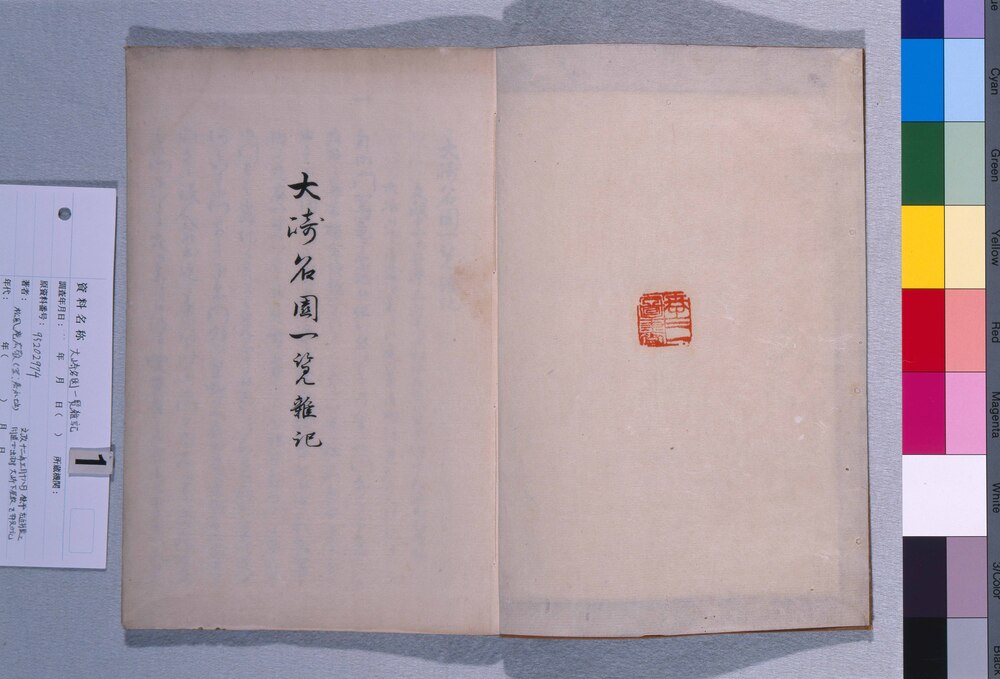 大崎名園一覧雜記
資料名称 大崎名園一覧雑記
調査年月日： 年 月 日（ ） 所蔵機関：
原資料番号： 95202974
著者：
年代： 年（ ） 月 日
1
Cyan
Green
Yellow
Red
Magenta
White
3/Color
Black